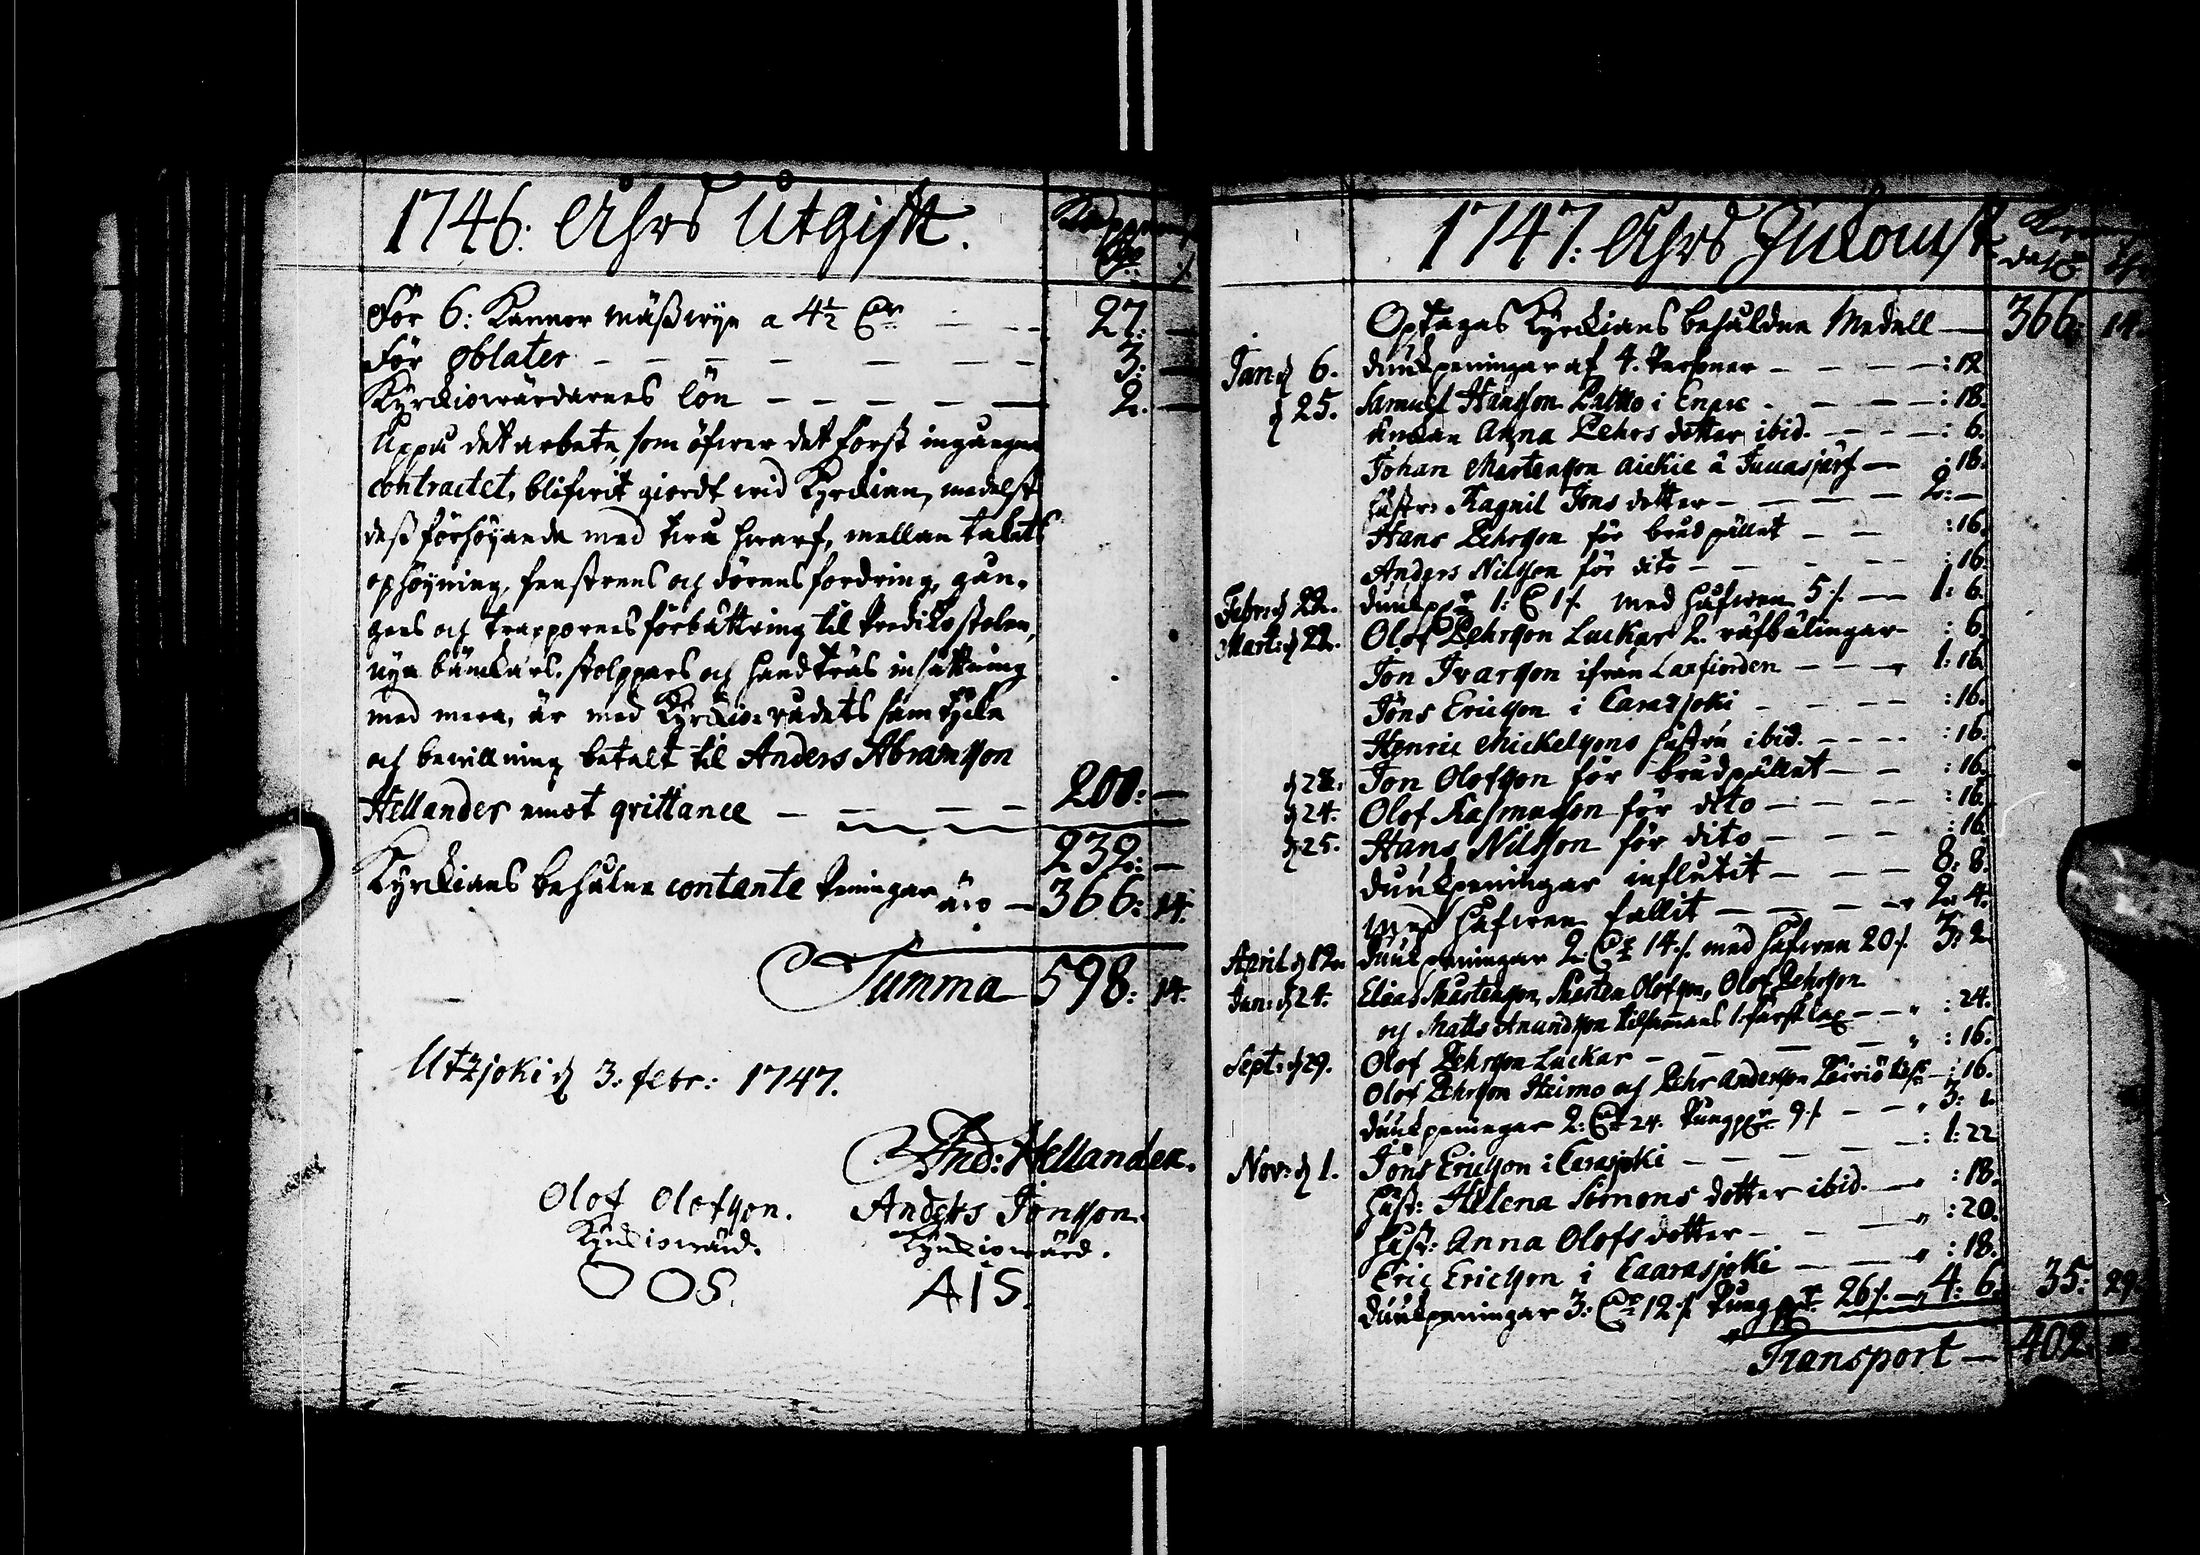 1746: Ahrs Utgift.
För 6: Kannor mässwyn a 4½ Dr 27: —
För oblater 3: —
Kyrckiowärdarnes lön 2. —
Uppå det arbete, som öfwer det först ingångne
contractet, blifwit giordt wid Kyrckian, medelst
dess förhöyande med twå hwarf, mellan taketz
ophöyning, fenstrens och dörens fordring, gån-
gens och trappornes förbättring til Predikostolen,
nya bänckars, stolppars och handträs insättning
med mera, är med Kyrckio-rådets samtycke
och bewillning betalt til Anders Abramsson
Hellander emot qvittance 200: —
232: —
Kyrckians behålne contante Peningar äro 366: 14.
Summa 598: 14.
Utzjoki d 3. febr: 1747.
And: Hellander.
Olof Olofsson. Anders Jonsson.
Kyrckiowärd. Kyrckiowärd.
OOS. AIS.
1747: Ahrs Inkomst
Optages Kyrckians behåldne Medell — 366: 14
Jan: d 6. duukpeningar af 4. Personer :12
d 25. Samuel Hansson i Enare :18.
Anna Pehrs dotter ibid. :6.
Johan Mortensson Aickie :18.
hustr: Ragnil Jons dotter 2: —
Hans Pehrsson för brudpället :16.
Anders Nilsson för dito :16.
Febr: d 22. 1: med håfwen 5 1: 6.
Mart: d 22. Olof Pehrsson Luckar 2. räfbälingar :6.
Jon Ivarsson ifrån Laxfiorden 1: 16.
Jöns Ericsson i Carasjoki :16.
Henric Mickelssons hustru ibid. :16.
Jon Olofsson för brudpället :16.
d 24. Olof Rasmusson för dito :16.
d 25. Hans Nilsson för dito :16.
duukpeningar influtit 8: 8.
med håfwen fallit 2: 4.
April d 12. duukpeningar 2. Dr 14. med håfwen 20 3: 2
Jan: d 24. Elias Mortensson, Morten Olofsson, Olof Pehrsson
och Matts Amundsson tilsammans 1 färsk lax :24.
Sept: d 29. Olof Pehrsson Luckar :16.
Olof Pehrsson Heimo och Pehr Andersson :16.
duukpeningar 2: Dr 24. 9 3: 1.
Nov: d 1. Jöns Ericsson i Carasjoki 1: 22
hust: Helena Simons dotter ibid. :18.
hust: Anna Olofs dotter :20.
Eric Ericsson i Caarasjoki :18.
duukpeningar 3: Dr 12 26 4: 6. 35: 29.
Transport — 402.